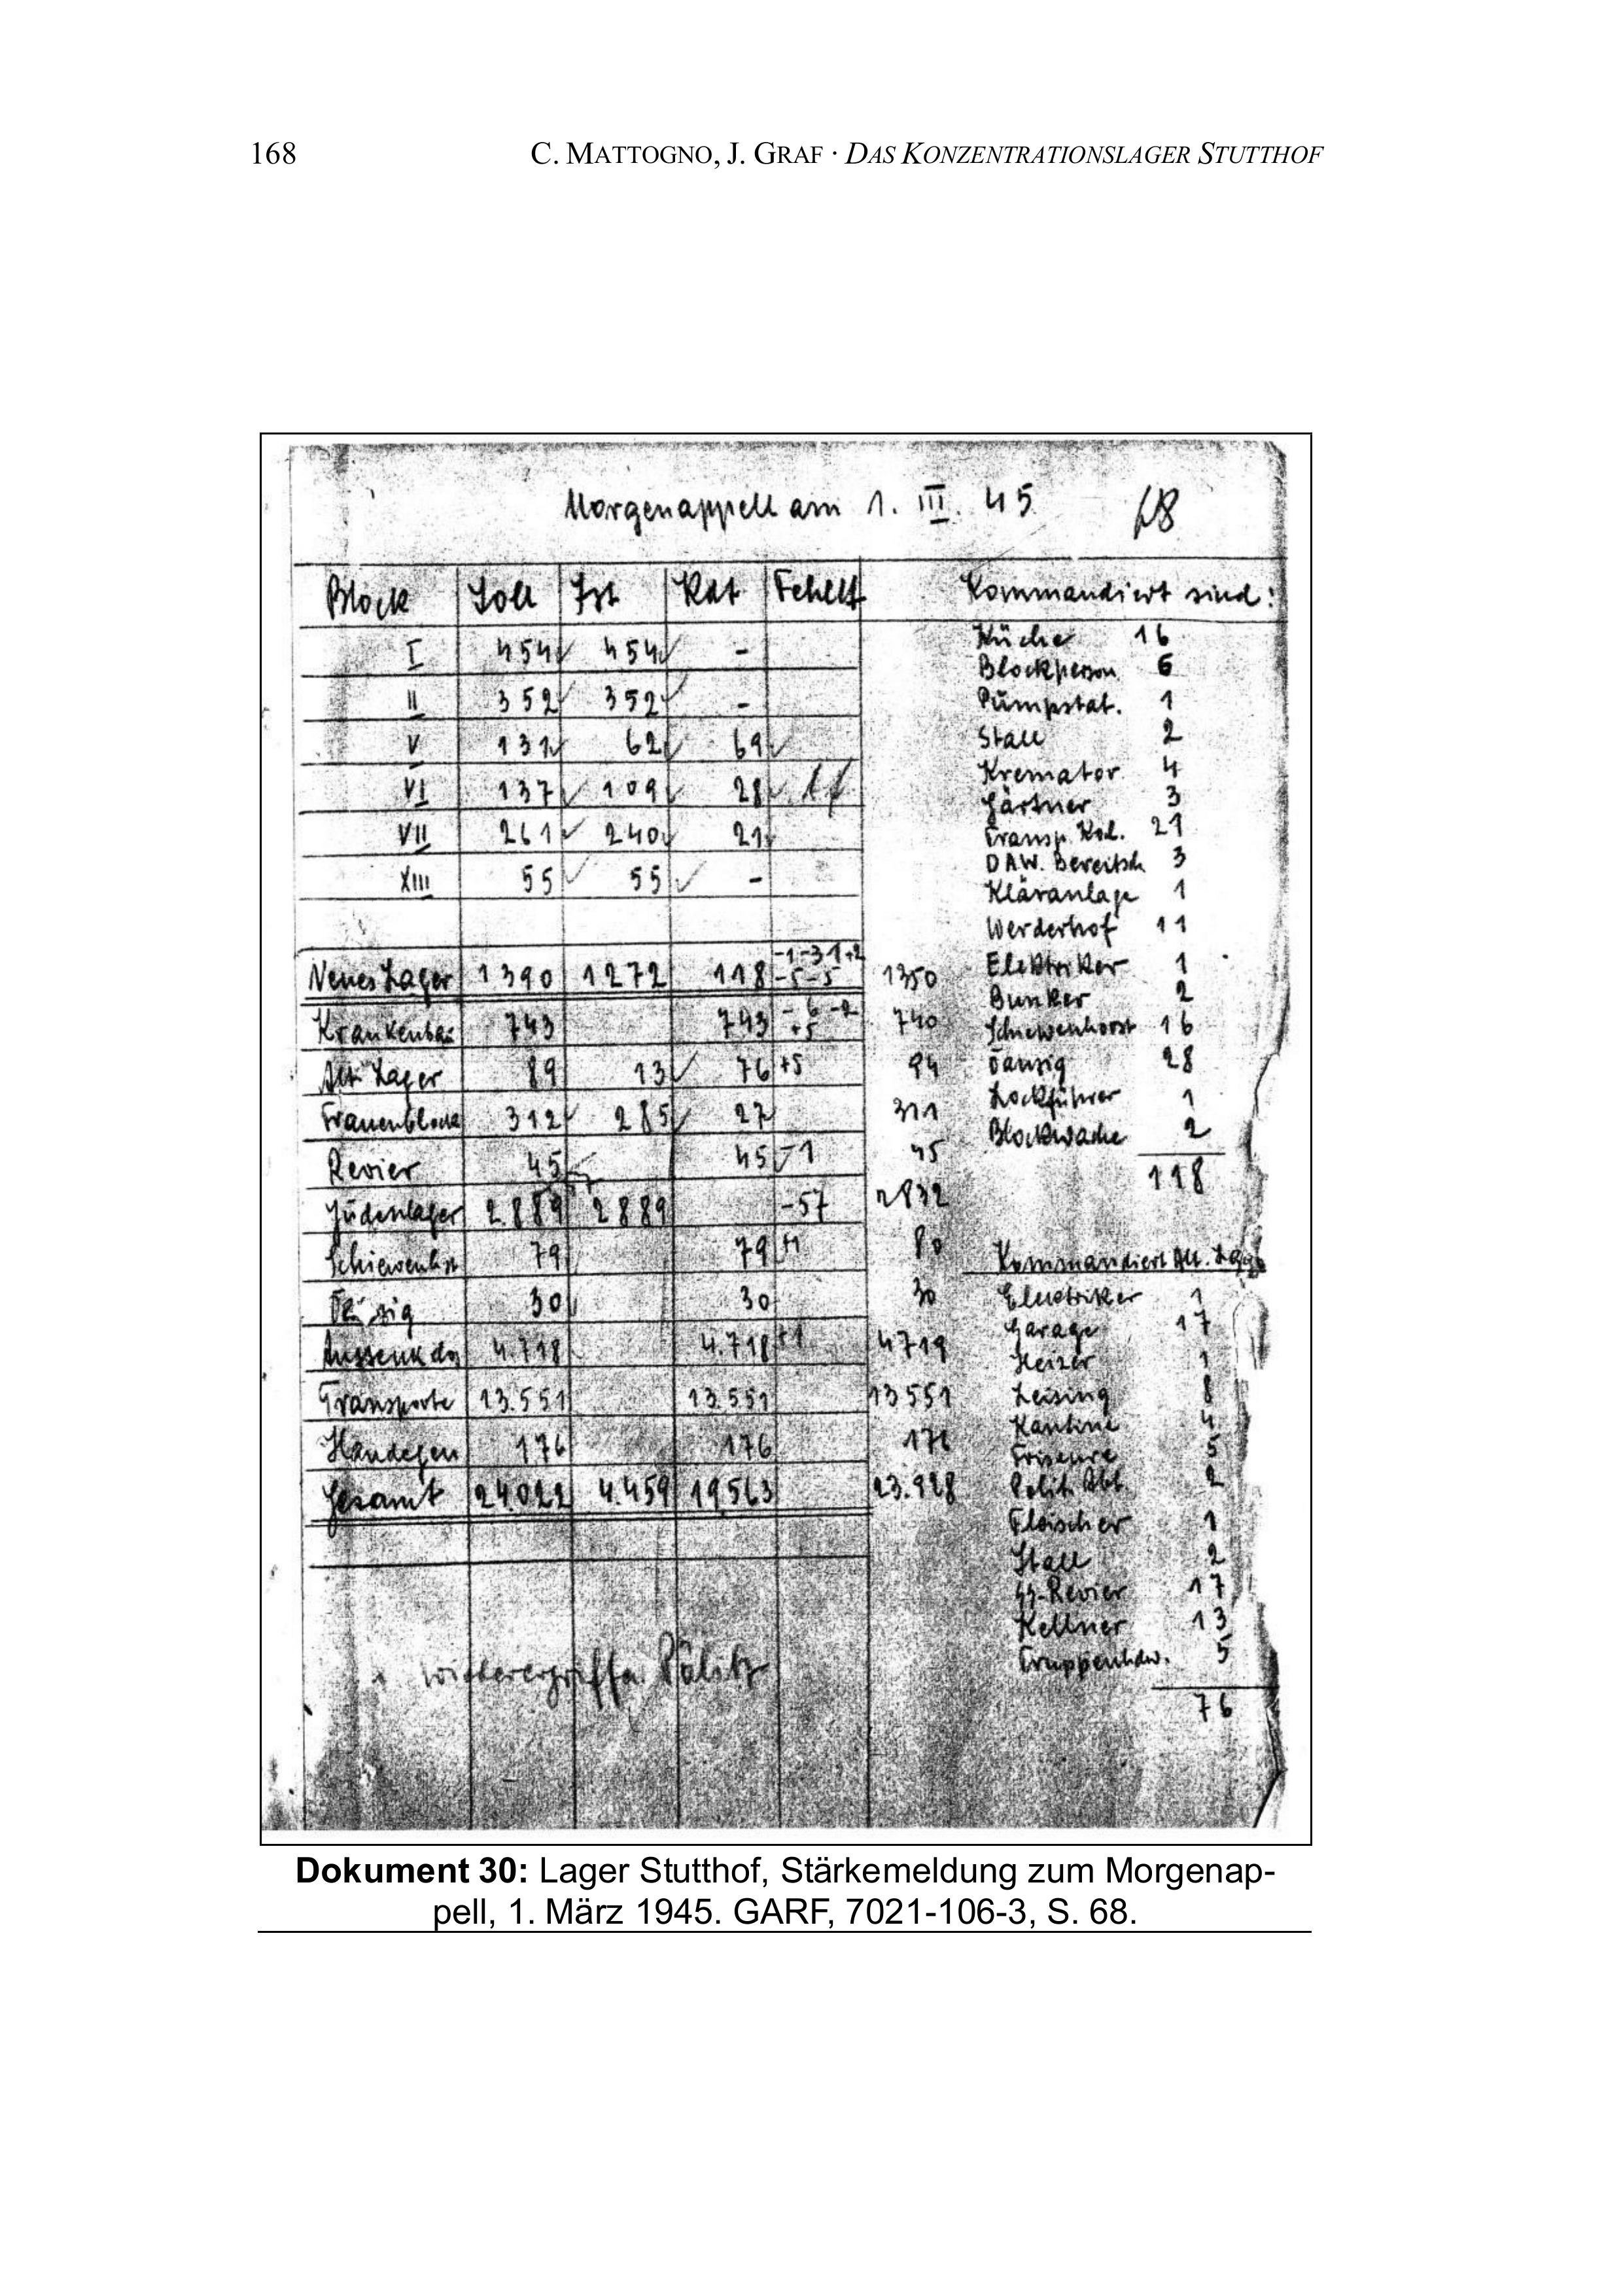 168 C. MATTOGNO, J. GRAF · DAS KONZENTRATIONSLAGER STUTTHOF
Morgenappell am 1. III. 45 68
Block Soll Ist Kdt Fehlt Kommandiert sind:
I 454 454 -
II 352 352 -
V 131 62 69
VI 137 109 28
VII 261 240 21
XIII 55 55 -
Neues Lager 1390 1272 118 -1-31+2 -5-5 1350
Krankenbau 743 743 -6-2 +5 740
Alt. Lager 89 13 76 +5 94
Frauenblock 312 285 27 311
Revier 45 45 -1 45
Judenlager 2.889 2889 -57 2832
Schiewenhst 79 79 +1 80
Danzig 30 30 30
Aussenkdo 4.718 4.718 +1 4719
Transporte 13.551 13.551 13551
176 176 176
Gesamt 24.022 4.459 19563 23.928
1 wiederergriffen Pölitz
Küche 16
Blockperson 6
Pumpstat. 1
Stall 2
Kremator. 4
Gärtner 3
Transp. Kol. 21
DAW. Bereitsch 3
Kläranlage 1
Werderhof 11
Elektriker 1
Bunker 2
Schiewenhorst 16
Danzig 28
Lockführer 1
Blockwache 2
118
Kommandiert Alt. Lager
Elektriker 1
Garage 17
Heizer 1
Leising 8
Kantine 4
Friseure 5
Polit. Abt. 2
Fleischer 1
Stall 2
SS-Revier 17
Kellner 13
Truppenhdw. 5
76
Dokument 30: Lager Stutthof, Stärkemeldung zum Morgenap-
pell, 1. März 1945. GARF, 7021-106-3, S. 68.